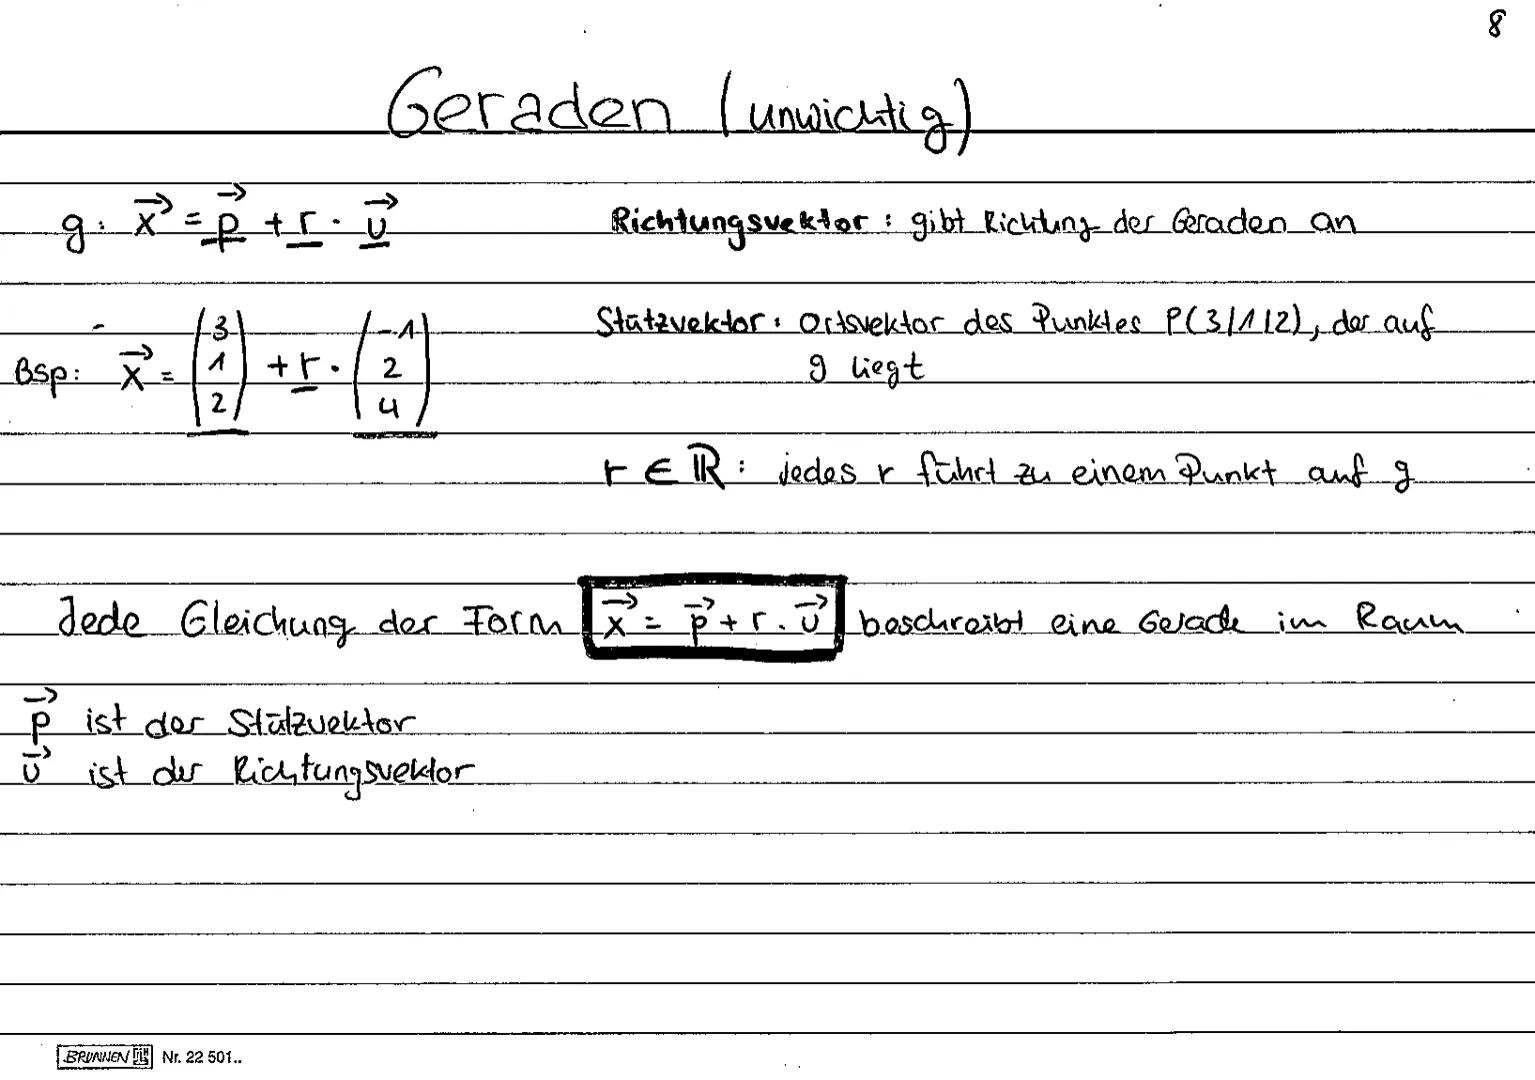 8
Geraden (unwichtig)
g: x⃗ = p⃗ + r · u⃗
Richtungsvektor: gibt Richtung der Geraden an
Bsp: x⃗ = (3 1 2) + r · (-1 2 4)
Stützvektor: Ortsvektor des Punktes P(3/1/2), der auf
g liegt
r ∈ ℝ: jedes r führt zu einem Punkt auf g
Jede Gleichung der Form x⃗ = p⃗ + r · u⃗ beschreibt eine Gerade im Raum
p⃗ ist der Stützvektor
u⃗ ist der Richtungsvektor
BRUNNEN Nr. 22 501..